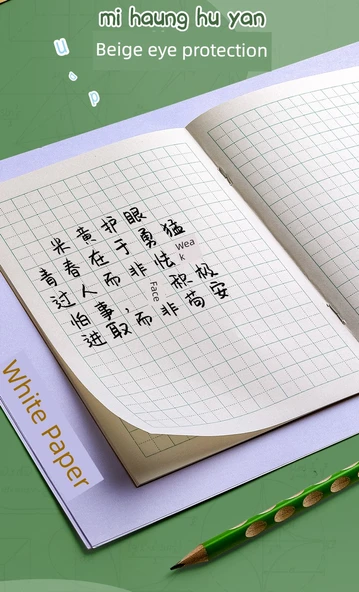 mi haung hu yan
Beige eye protection
U
P
米黄护眼
青春在于勇猛
Weak
过人而非怯
Face
积极
怕事,
进取而非苟安
White Paper